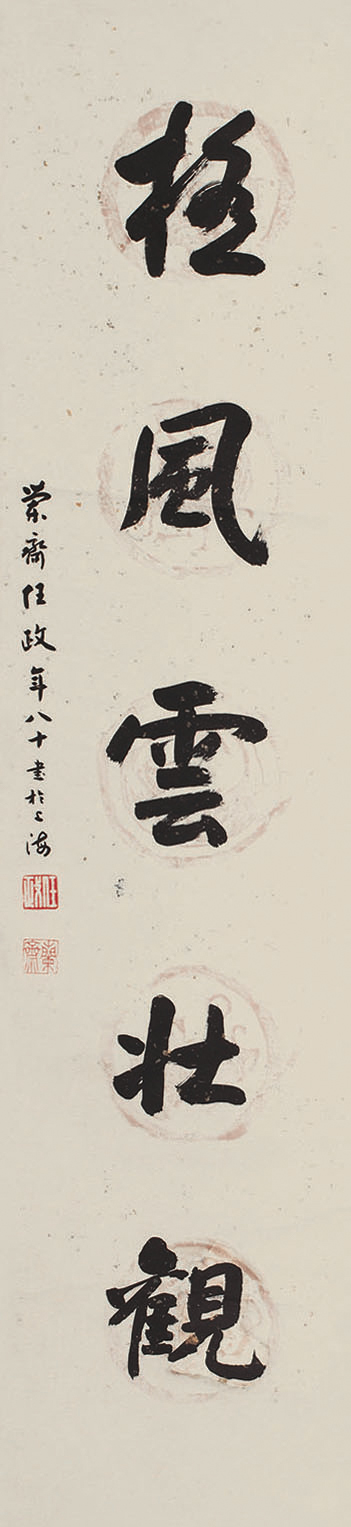 極風雲壯觀
蘭齋任政年八十書於上海
任政
蘭齋